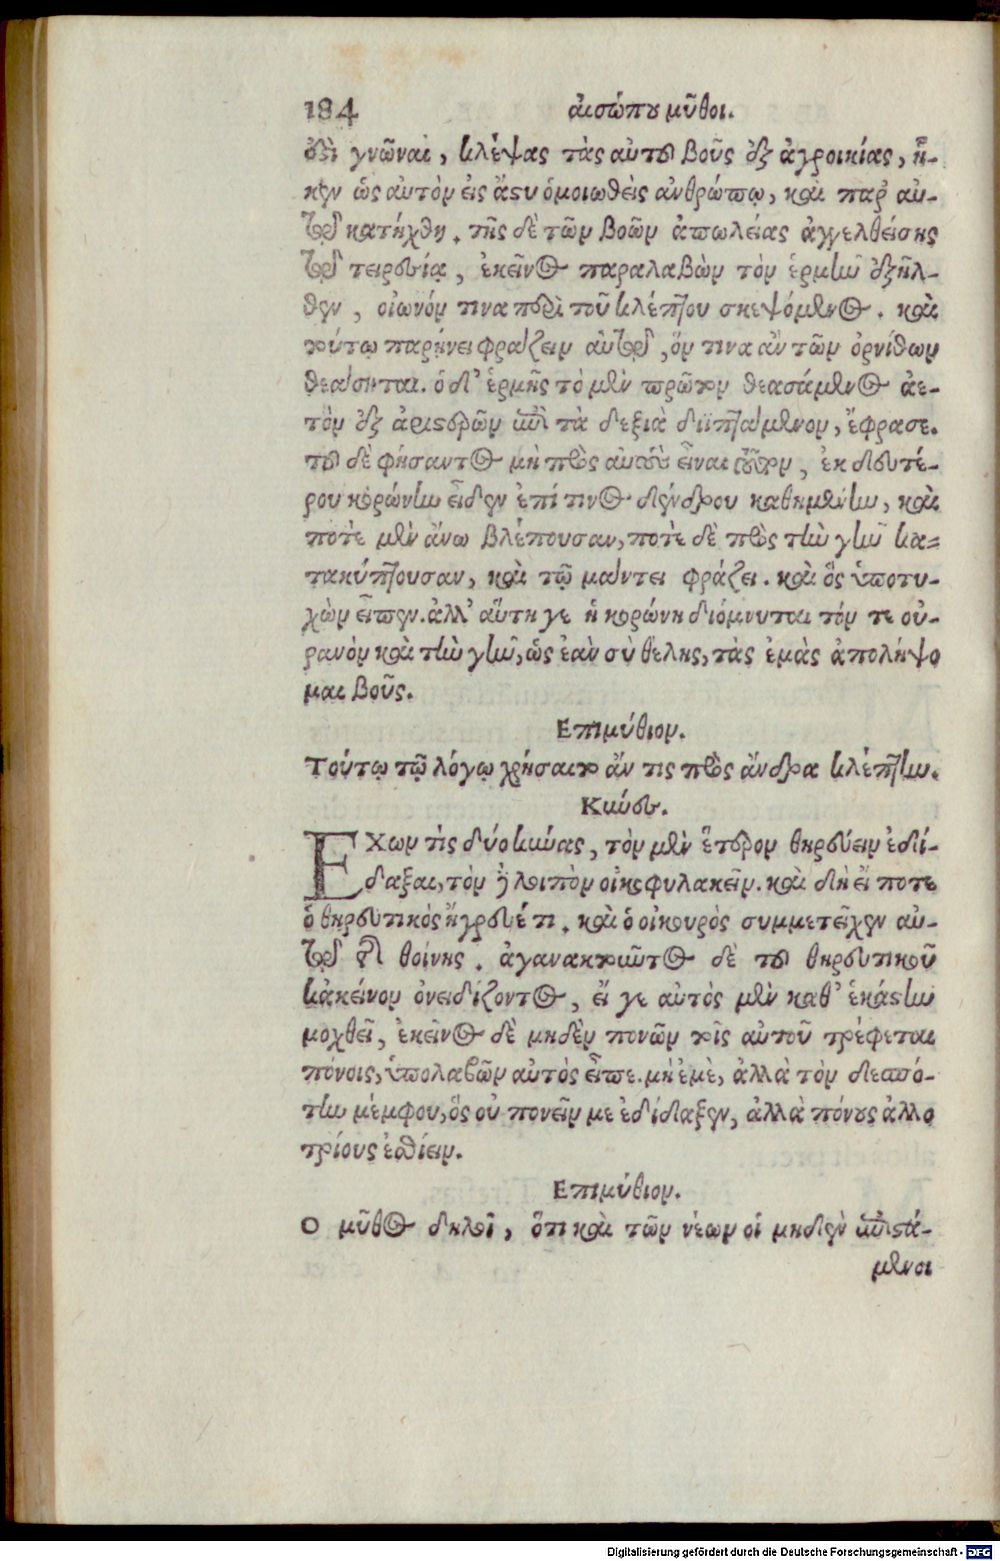 184 αἰσώπου μῦθοι.
ἐστι γνῶναι, κλέψας τὰς αὐτοῦ βοῦς ἐξ ἀγροικίας, ἧ-
κεν ὡς αὐτὸν εἰς ἄστυ ὁμοιωθεὶς ἀνθρώπῳ, καὶ παρ' αὐ-
τῷ κατήχθη. τῆς δὲ τῶν βοῶν ἀπωλείας ἀγγελθείσης
τῷ τειρεσίᾳ, ἐκεῖνος παραλαβὼν τὸν ἑρμῆν ἐξῆλ-
θεν, οἰωνόν τινα περὶ τοῦ κλέπτου σκεψόμενος. καὶ
τούτῳ παρῄνει φράζειν αὐτῷ, ὅν τινα ἂν τῶν ὀρνίθων
θεάσηται. ὁ δ' ἑρμῆς τὸ μὲν πρῶτον θεασάμενος ἀε-
τὸν ἐξ ἀριστερῶν ἐπὶ τὰ δεξιὰ διϊπτάμενον, ἔφρασε.
τοῦ δὲ φήσαντος μὴ πρὸς αὐτοὺς εἶναι τοῦτον, ἐκ δευτέ-
ρου κορώνην εἶδεν ἐπί τινος δένδρου καθημένην, καὶ
ποτὲ μὲν ἄνω βλέπουσαν, ποτὲ δὲ πρὸς τὴν γῆν κα=
τακύπτουσαν, καὶ τῷ μάντει φράζει. καὶ ὃς ὑποτυ-
χὼν εἶπεν. ἀλλ' αὕτη γε ἡ κορώνη διόμνυται τόν τε οὐ-
ρανὸν καὶ τὴν γῆν, ὡς ἐὰν σὺ θέλης, τὰς ἐμὰς ἀπολήψο
μαι βοῦς.
Επιμύθιον.
Τούτῳ τῷ λόγῳ χρήσαιτο ἄν τις πρὸς ἄνδρα κλέπτην.
Κύνες.
ΕΧων τὶς δύο κύνας, τὸν μὲν ἕτερον θηρεύειν ἐδί-
δαξαι, τὸν δὲ λοιπὸν οἰκοφυλακεῖν. καὶ δὴ εἴ ποτε
ὁ θηρευτικὸς ἤγρευέ τι, καὶ ὁ οἰκουρὸς συμμετεῖχεν αὐ-
τῷ τῆς θοίνης. ἀγανακτοῦντος δὲ τοῦ θηρευτικοῦ
κἀκείνον ὀνειδίζοντος, εἴ γε αὐτὸς μὲν καθ' ἑκάστην
μοχθεῖ, ἐκεῖνος δὲ μηδὲν πονῶν τοῖς αὐτοῦ τρέφεται
πόνοις, ὑπολαβῶν αὐτὸς εἶπε. μὴ ἐμὲ, ἀλλὰ τὸν δεσπό-
την μέμφου, ὃς οὐ πονεῖν με ἐδίδαξεν, ἀλλὰ πόνους ἀλλο
τρίους ἐσθίειν.
Επιμύθιον.
Ο μῦθος δηλοῖ, ὅτι καὶ τῶν νέων οἱ μηδὲν ἐπιστά-
μενοι
Digitalisierung gefördert durch die Deutsche Forschungsgemeinschaft - DFG